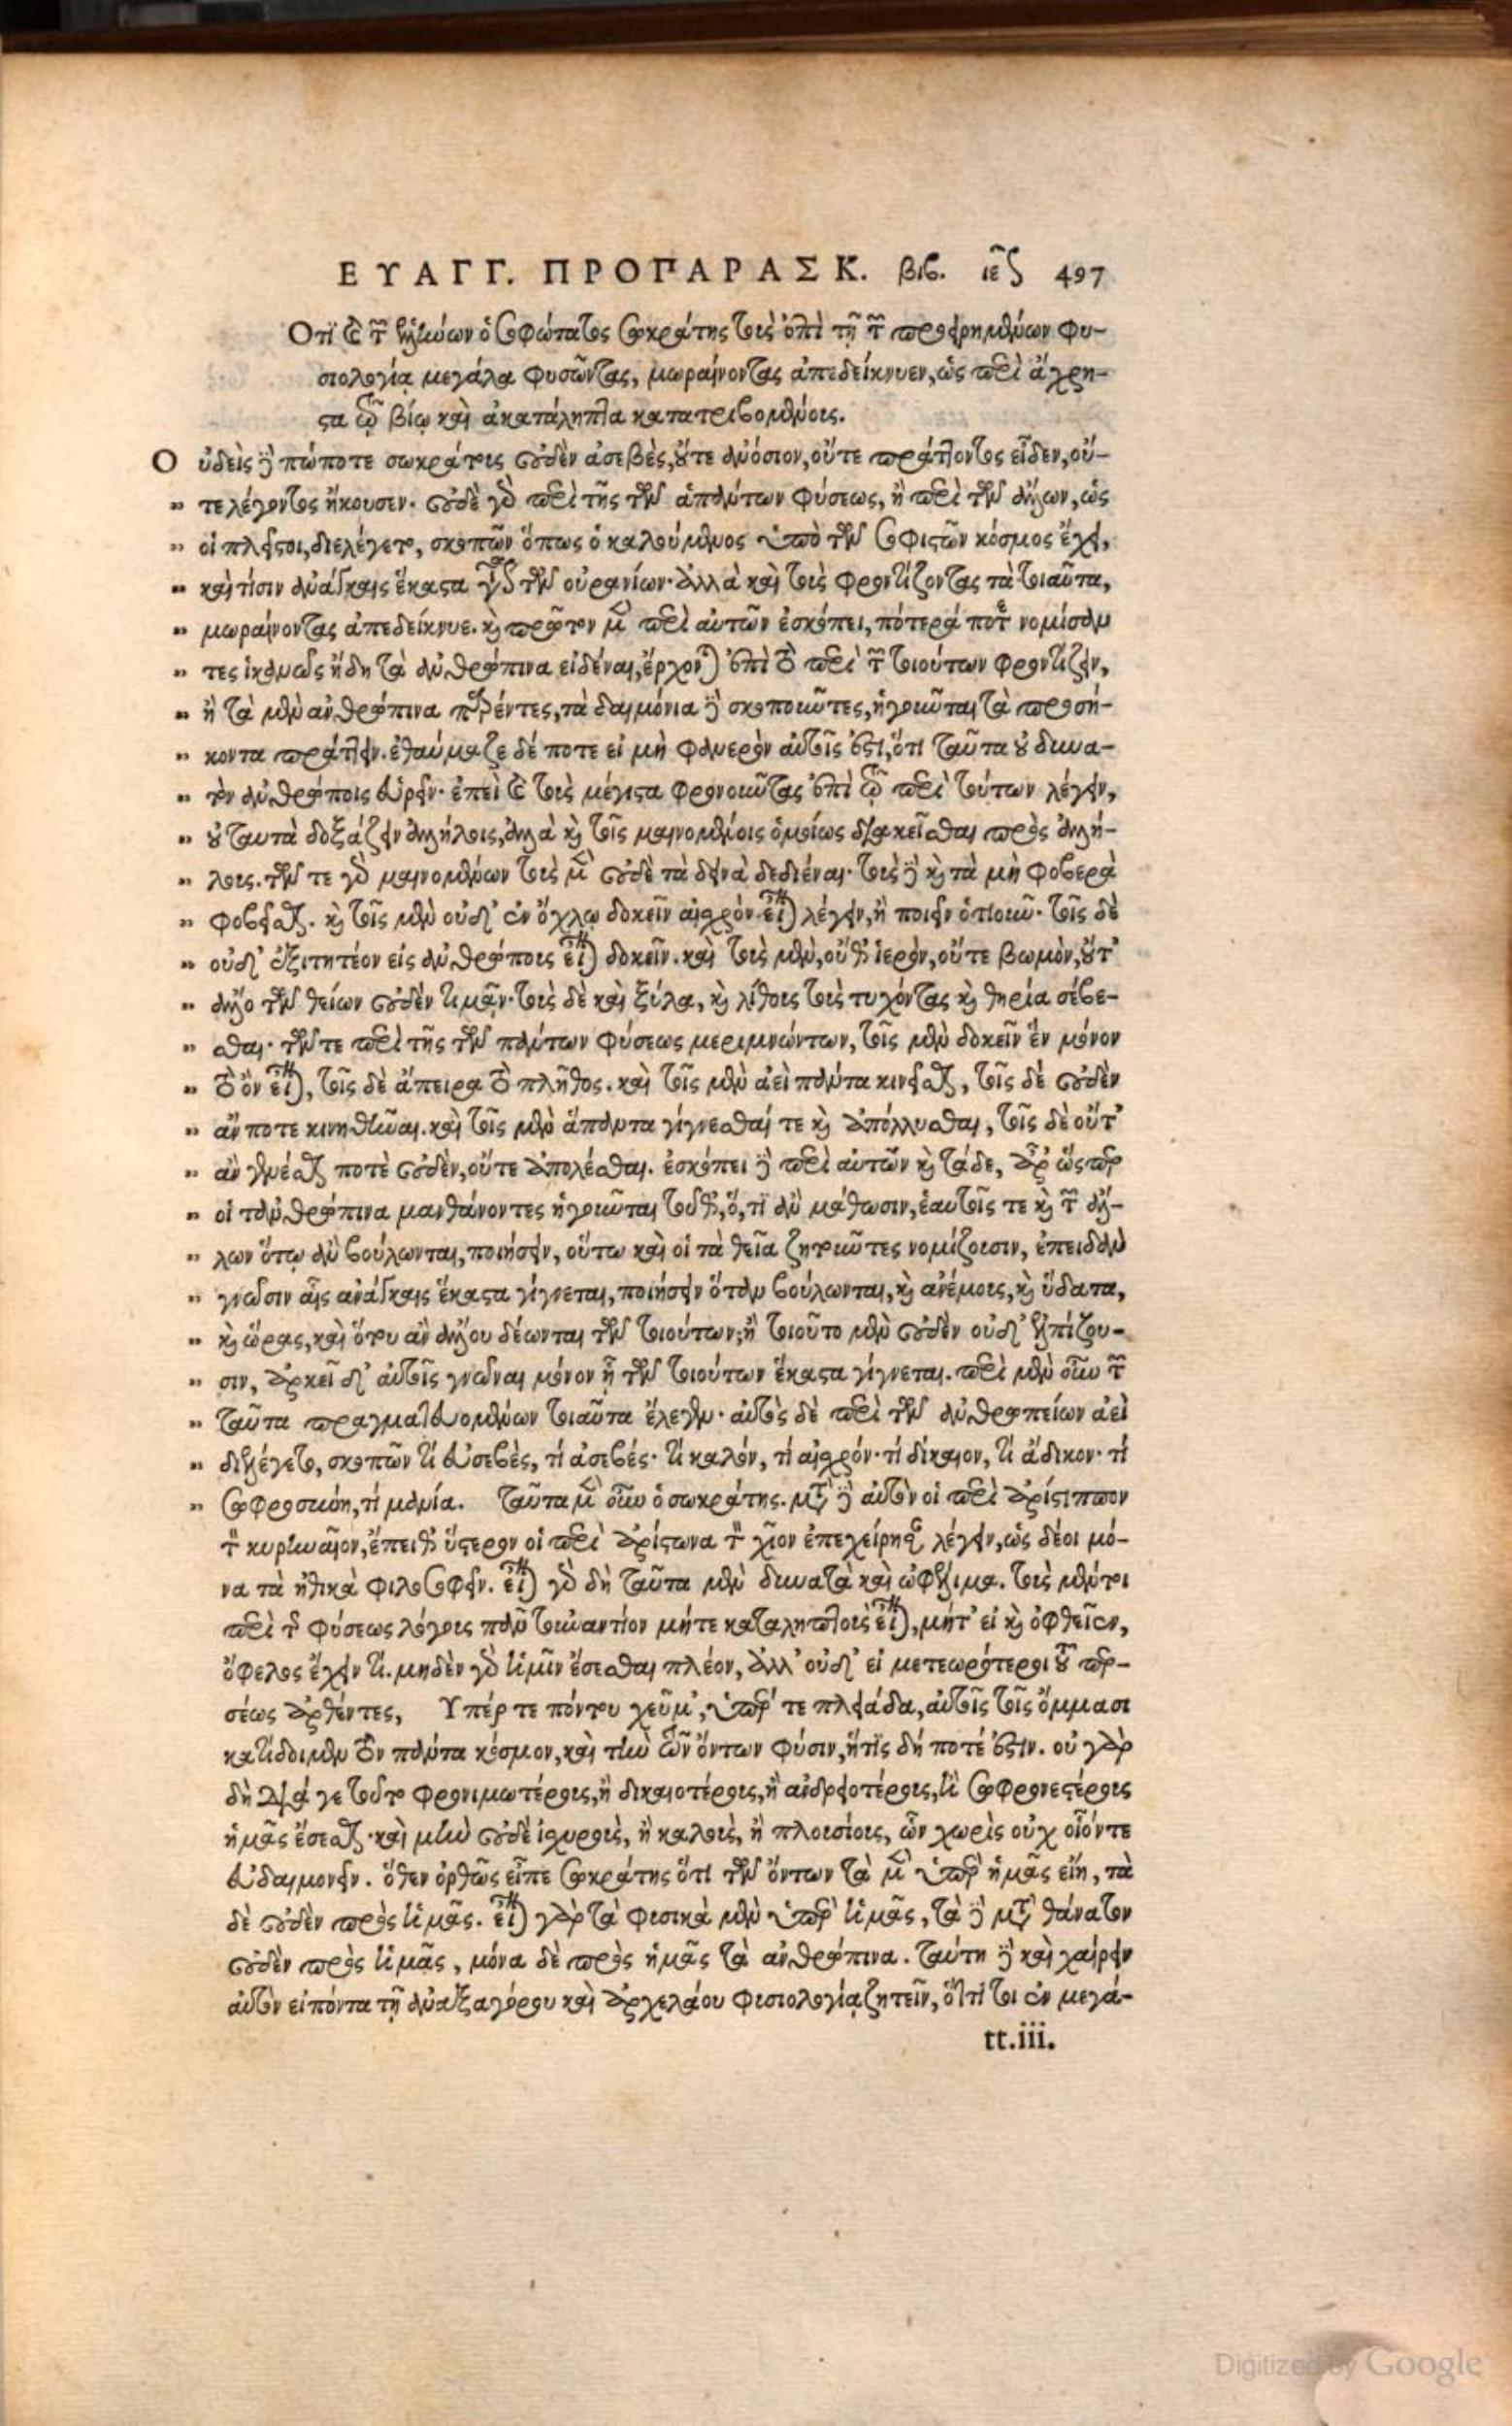 ΕΥΑΓΓ. ΠΡΟΠΑΡΑΣΚ. βιβ. ιε 497
Ὅτι καὶ τῶν ἑλλήνων ὁ σοφώτατος σωκράτης τοὺς ἐπὶ τῇ τῶν προειρημένων φυ-
σιολογίᾳ μεγάλα φυσῶντας, μωραίνοντας ἀπεδείκνυεν, ὡς περὶ ἄχρη-
στα τῷ βίῳ καὶ ἀκατάληπτα κατατριβομένους.
Οὐδεὶς δὲ πώποτε σωκράτους οὐδὲν ἀσεβὲς, οὔτε ἀνόσιον, οὔτε πράττοντος εἶδεν, οὔ-
" τε λέγοντος ἤκουσεν. οὐδὲ γὰρ περὶ τῆς τῶν ἁπάντων φύσεως, ἢ περὶ τῶν ἄλλων, ὡς
" οἱ πλεῖστοι, διελέγετο, σκοπῶν ὅπως ὁ καλούμενος ὑπὸ τῶν σοφιστῶν κόσμος ἔχει,
" καὶ τίσιν ἀνάγκαις ἕκαστα γίνεται τῶν οὐρανίων. ἀλλὰ καὶ τοὺς φροντίζοντας τὰ τοιαῦτα,
" μωραίνοντας ἀπεδείκνυε. καὶ πρῶτον μὲν περὶ αὐτῶν ἐσκόπει, πότερά ποτε νομίσαν
" τες ἱκανῶς ἤδη τὰ ἀνθρώπινα εἰδέναι, ἔρχονται ἐπὶ τὸ περὶ τῶν τοιούτων φροντίζειν,
" ἢ τὰ μὲν ἀνθρώπινα παρέντες, τὰ δαιμόνια δὲ σκοποῦντες, ἡγοῦνται τὰ προσή-
" κοντα πράττειν. ἐθαύμαζε δέ ποτε εἰ μὴ φανερὸν αὐτοῖς ἐστι, ὅτι ταῦτα οὐ δυνα-
" τὸν ἀνθρώποις εὑρεῖν. ἐπεὶ καὶ τοὺς μέγιστα φρονοῦντας ἐπὶ τῷ περὶ τούτων λέγειν,
" οὐ ταυτὰ δοξάζειν ἀλλήλοις, ἀλλὰ καὶ τοῖς μαινομένοις ὁμοίως διακεῖσθαι πρὸς ἀλλή-
" λους. τῶν τε γὰρ μαινομένων τοὺς μὲν οὐδὲ τὰ δεινὰ δεδιέναι. τοὺς δὲ καὶ τὰ μὴ φοβερὰ
" φοβεῖσθαι. καὶ τοῖς μὲν οὐδ' ἐν ὄχλῳ δοκεῖν αἰσχρὸν εἶναι λέγειν, ἢ ποιεῖν ὁτιοῦν. τοῖς δὲ
" οὐδ' ἐξιτητέον εἰς ἀνθρώπους εἶναι δοκεῖν. καὶ τοὺς μὲν, οὔθ' ἱερὸν, οὔτε βωμὸν, οὔτ'
" ἄλλο τῶν θείων οὐδὲν τιμᾷν. τοὺς δὲ καὶ ξύλα, καὶ λίθους τοὺς τυχόντας καὶ θηρία σέβε-
" σθαι. τῶν τε περὶ τῆς τῶν πάντων φύσεως μεριμνώντων, τοῖς μὲν δοκεῖν ἓν μόνον
" τὸ ὂν εἶναι, τοῖς δὲ ἄπειρα τὸ πλῆθος. καὶ τοῖς μὲν ἀεὶ πάντα κινεῖσθαι, τοῖς δὲ οὐδὲν
" ἄν ποτε κινηθῆναι. καὶ τοῖς μὲν ἅπαντα γίγνεσθαί τε καὶ ἀπόλλυσθαι, τοῖς δὲ οὔτ'
" ἂν γενέσθαι ποτὲ οὐδὲν, οὔτε ἀπολέσθαι. ἐσκόπει δὲ περὶ αὐτῶν καὶ τάδε, ἆρ' ὥσπερ
" οἱ τἀνθρώπινα μανθάνοντες ἡγοῦνται τοῦθ', ὅ,τι ἂν μάθωσιν, ἑαυτοῖς τε καὶ τῶν ἄλ-
" λων ὅτῳ ἂν βούλωνται, ποιήσειν, οὕτω καὶ οἱ τὰ θεῖα ζητοῦντες νομίζουσιν, ἐπειδὰν
" γνῶσιν αἷς ἀνάγκαις ἕκαστα γίγνεται, ποιήσειν ὅταν βούλωνται, καὶ ἀνέμους, καὶ ὕδατα,
" καὶ ὥρας, καὶ ὅτου ἂν ἄλλου δέωνται τῶν τοιούτων; ἢ τοιοῦτο μὲν οὐδὲν οὐδ' ἐλπίζου-
" σιν, ἀρκεῖ δ' αὐτοῖς γνῶναι μόνον ᾗ τῶν τοιούτων ἕκαστα γίγνεται. περὶ μὲν οὖν τῶν
" ταῦτα πραγματευομένων τοιαῦτα ἔλεγεν. αὐτὸς δὲ περὶ τῶν ἀνθρωπείων ἀεὶ
" διελέγετο, σκοπῶν τί εὐσεβὲς, τί ἀσεβές. τί καλόν, τί αἰσχρόν. τί δίκαιον, τί ἄδικον. τί
" σωφροσύνη, τί μανία. Ταῦτα μὲν οὖν ὁ σωκράτης. μετὰ δὲ αὐτὸν οἱ περὶ ἀρίστιππον
τὸν κυρηναῖον, ἔπειθ' ὕστερον οἱ περὶ ἀρίστωνα τὸν χῖον ἐπεχείρησαν λέγειν, ὡς δέοι μό-
να τὰ ἠθικὰ φιλοσοφεῖν. εἶναι γὰρ δὴ ταῦτα μὲν δυνατὰ καὶ ὠφέλιμα. τοὺς μέντοι
περὶ τῆς φύσεως λόγους πᾶν τοὐναντίον μήτε καταληπτοὺς εἶναι, μήτ' εἰ καὶ ὀφθεῖεν,
ὄφελος ἔχειν τι. μηδὲν γὰρ ἡμῖν ἔσεσθαι πλέον, ἀλλ' οὐδ' εἰ μετεωρότεροι τοῦ περ-
σέως ἀρθέντες, Ὑπέρ τε πόντου χεῦμ', ὑπέρ τε πλειάδα, αὐτοῖς τοῖς ὄμμασι
κατίδοιμεν τὸν πάντα κόσμον, καὶ τὴν τῶν ὄντων φύσιν, ἥτις δή ποτέ ἐστιν. οὐ γὰρ
δὴ διά γε τοῦτο φρονιμωτέρους, ἢ δικαιοτέρους, ἢ ἀνδρειοτέρους, ἢ σωφρονεστέρους
ἡμᾶς ἔσεσθαι. καὶ μὴν οὐδὲ ἰσχυροὺς, ἢ καλοὺς, ἢ πλουσίους, ὧν χωρὶς οὐχ οἷόντε
εὐδαιμονεῖν. ὅθεν ὀρθῶς εἶπε σωκράτης ὅτι τῶν ὄντων τὰ μὲν ὑπὲρ ἡμᾶς εἴη, τὰ
δὲ οὐδὲν πρὸς ἡμᾶς. εἶναι γὰρ τὰ φυσικὰ μὲν ὑπὲρ ἡμᾶς, τὰ δὲ μετὰ θάνατον
οὐδὲν πρὸς ἡμᾶς, μόνα δὲ πρὸς ἡμᾶς τὰ ἀνθρώπινα. ταύτῃ δὲ καὶ χαίρειν
αὐτὸν εἰπόντα τῇ ἀναξαγόρου καὶ ἀρχελάου φυσιολογίᾳ ζητεῖν, ὅ,τι τοι ἐν μεγά-
tt.iii.
Digitized by Google